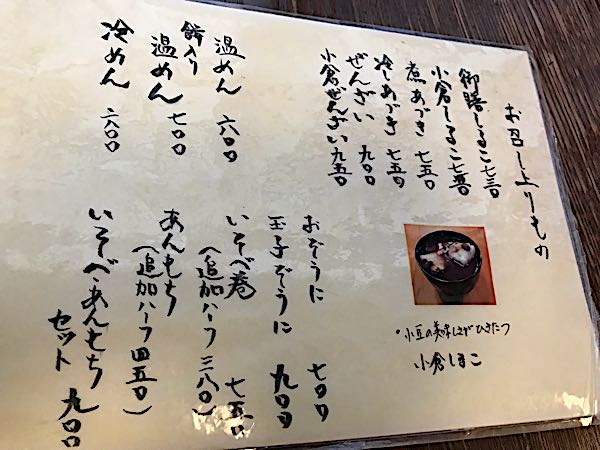 お召し上りもの
御膳しるこ 七三〇
小倉しるこ 七五〇
煮あづき 七五〇
冷しあづき 七五〇
ぜんざい 九〇〇
小倉ぜんざい 九五〇
温めん 六〇〇
餅入り
温めん 七〇〇
冷めん 六〇〇
・小豆の美味しさがひきたつ
小倉しるこ
おぞうに 七〇〇
玉子ぞうに 九〇〇
いそべ巻 七五〇
（追加ハーフ 三八〇）
あんもち
（追加ハーフ 四五〇）
いそべ・あんもち
セット 九〇〇